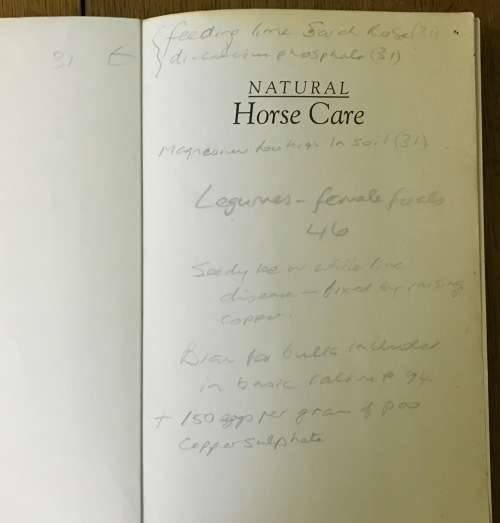 31 ← { feeding lime Sarah Rose (31)
di-calcium phosphate (31)
NATURAL
Horse Care
Magnesium too high in soil (31)
Legumes - female foals
46
Seedy toe or white line
disease - fixed by raising
copper.
Bran for bulk included
in basic ration p 94
+ 150 eggs per gram of poo
copper sulphate